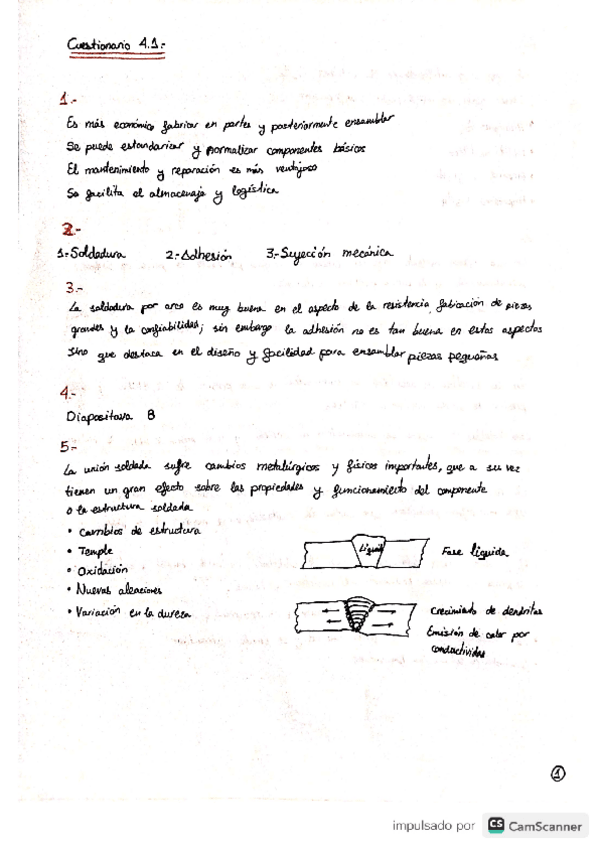 Cuestionario 4.1.-
1.-
Es más económico fabricar en partes y posteriormente ensamblar
Se puede estandarizar y normalizar componentes básicos
El mantenimiento y reparación es más ventajoso
Se facilita el almacenaje y logística
2.-
1.- Soldadura 2.- Adhesión 3.- Sujeción mecánica
3.-
La soldadura por arco es muy buena en el aspecto de la resistencia, fabricación de piezas
grandes y la confiabilidad; sin embargo la adhesión no es tan buena en estos aspectos
sino que destaca en el diseño y facilidad para ensamblar piezas pequeñas
4.-
Diapositiva 8
5.-
La unión soldada sufre cambios metalúrgicos y físicos importantes, que a su vez
tienen un gran efecto sobre las propiedades y funcionamiento del componente
o la estructura soldada
• Cambios de estructura
• Temple
• Oxidación
• Nuevas aleaciones
• Variación en la dureza
Liquid
Fase líquida
Crecimiento de dendritas
Emisión de calor por
conductividad
1
impulsado por CS CamScanner